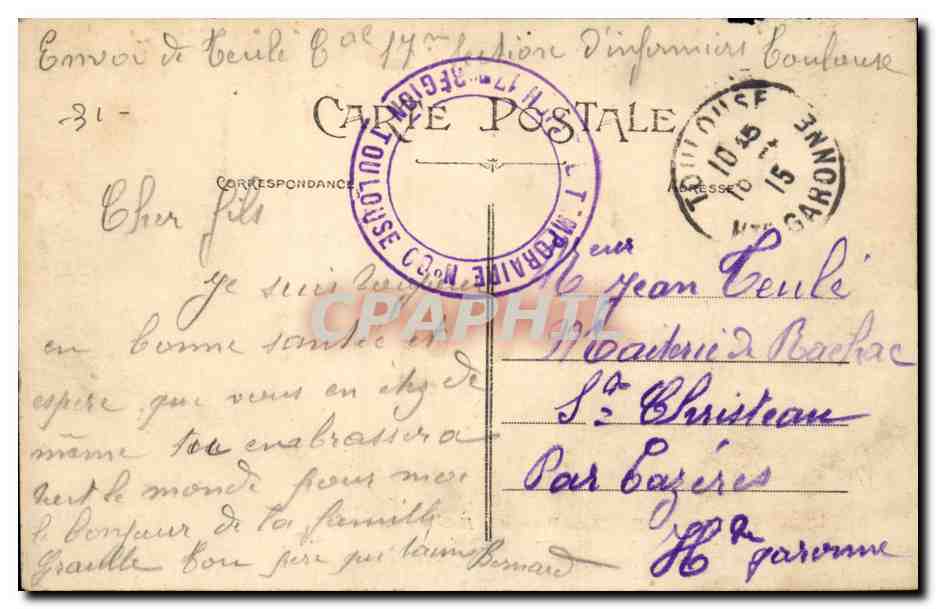 Envoi de Teulé Cal 17me Section d'infirmiers Toulouse
31 -
CARTE POSTALE
CORRESPONDANCE
ADRESSE
TOULOUSE
10
15
Hte GARONNE
17me RÉGION TOULOUSE
TEMPORAIRE No
CPAPHIL
Cher fils
Je suis toujours
en bonne santée et
espere que vous en étez de
même tu enabrassera
tout le monde pour moi
le bonjour de la famille
Ton père qui t'aime Bernard
Meur Jean Teulé
de Rachac
Ste Christeau
Par Cazéres
Hte garonne